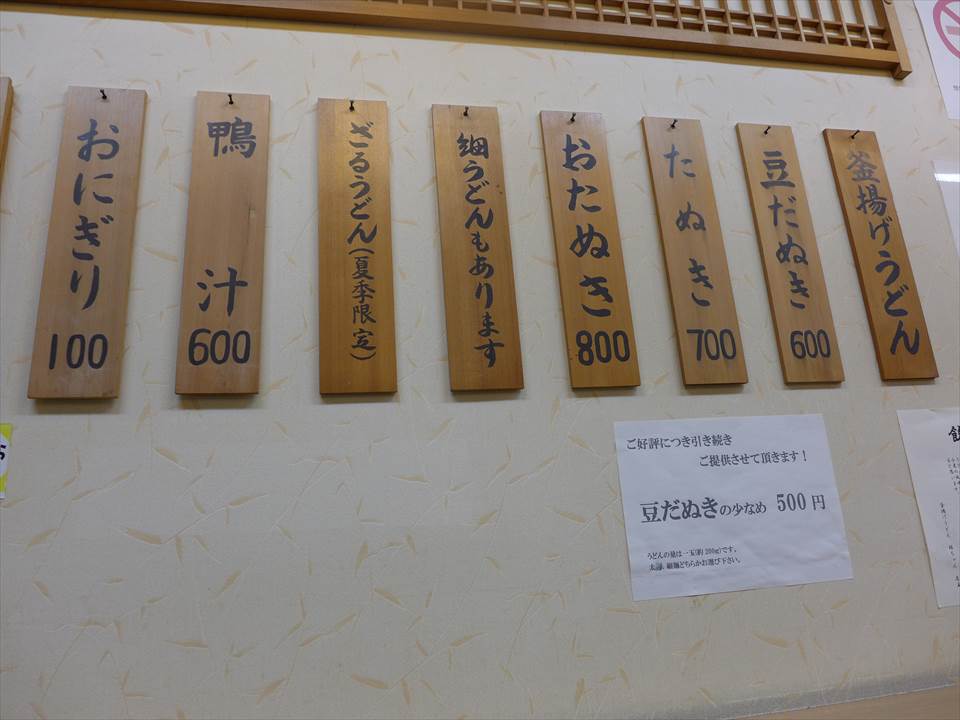 釜揚げうどん
豆だぬき
600
たぬき
700
おたぬき
800
細うどんもあります
ざるうどん(夏季限定)
鴨汁
600
おにぎり
100
ご好評につき引き続き
ご提供させて頂きます!
豆だぬきの少なめ 500円
うどんの量は一玉(約200g)です。
太麺、細麺どちらかお選び下さい。